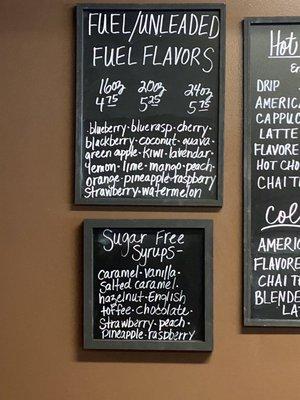 FUEL/UNLEADED
FUEL FLAVORS
16oz 20oz 24oz
4.75 5.25 5.75
blueberry·blue rasp·cherry·
blackberry·coconut·guava·
green apple·kiwi·lavendar·
lemon·lime·mango·peach·
orange·pineapple·raspberry
strawberry·watermelon
Sugar Free
Syrups-
caramel·vanilla·
salted caramel·
hazelnut·English
toffee·chocolate·
strawberry·peach·
pineapple·raspberry
Hot
DRIP
AMERICA
CAPPUC
LATTE
FLAVORE
HOT CHOC
CHAI T
Col
AMERICA
FLAVORE
CHAI T
BLENDE
LA